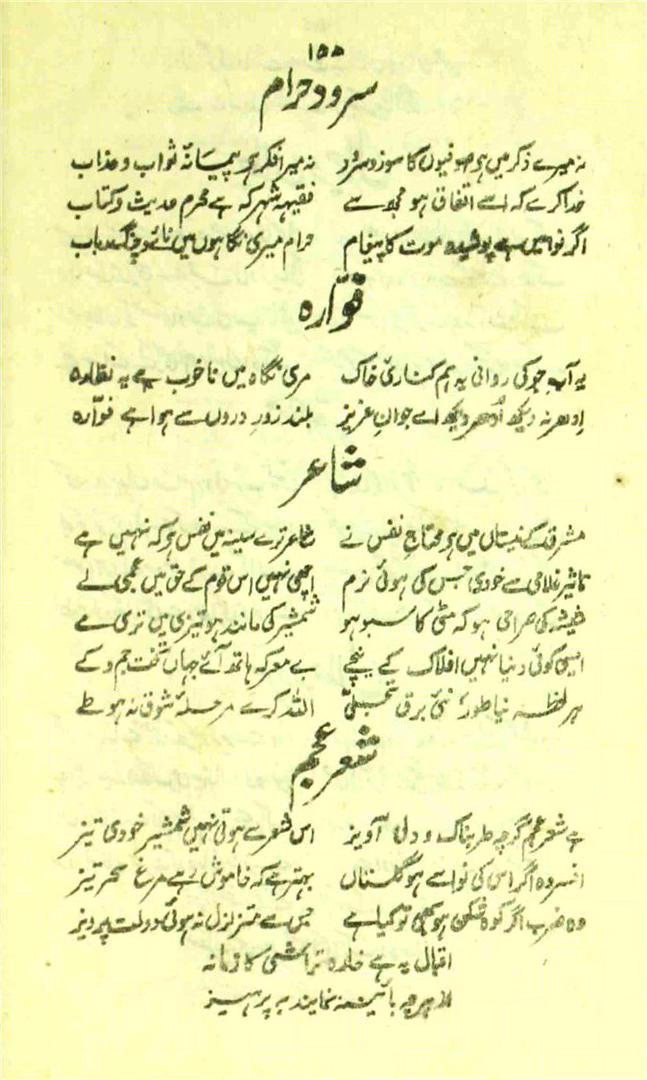 ۱۵۵
سرود حرام
نہ میرے ذکر میں ہے صوفیوں کا سوز و سرور نہ میرا فکر ہے پیمانۂ ثواب و عذاب
خدا کرے کہ اسے اتفاق ہو مجھ سے فقیہہ شہر کہ ہے محرم حدیث و کتاب
اگر نوا میں ہے پوشیدہ موت کا پیغام حرام میری نگاہوں میں نائے و چنگ و رباب
فوّارہ
یہ آب جو کی روانی یہ ہم کناریٔ خاک مری نگاہ میں ناخوب ہے یہ نظارہ
اِدھر نہ دیکھ اُدھر دیکھ اے جوانِ عزیز بلند زورِ دروں سے ہوا ہے فوّارہ
شاعر
مشرق کے نیستاں میں ہے محتاجِ نفس نے شاعر ترے سینہ میں نفس ہے کہ نہیں ہے
تاثیرِ غلامی سے خودی جس کی ہوئی نرم اچھی نہیں اس قوم کے حق میں عجمی لے
شیشہ کی صراحی ہو کہ مٹی کا سبو ہو شمشیر کی مانند ہو تیزی میں تری مے
ایسی کوئی دنیا نہیں افلاک کے نیچے بے معرکہ ہاتھ آئے جہاں تخت جم و کے
ہر لحظہ نیا طور نئی برق تجلیّ اللہ کرے مرحلۂ شوق نہ ہو طے
شعر عجم
ہے شعر عجم گرچہ طربناک و دل آویز اس شعر سے ہوتی نہیں شمشیر خودی تیز
افسردہ اگر اس کی نوا سے ہو گلستاں بہتر ہے کہ خاموش رہے مرغِ سحر تیز
وہ ضرب اگر کوہ شکن ہو بھی تو کیا ہے جس سے متزلزل نہ ہوئی دولت پرویز
اقبال یہ ہے خارہ تراشی کا زمانہ
از ہر چہ بآئینہ نمایند بہ پرہیز